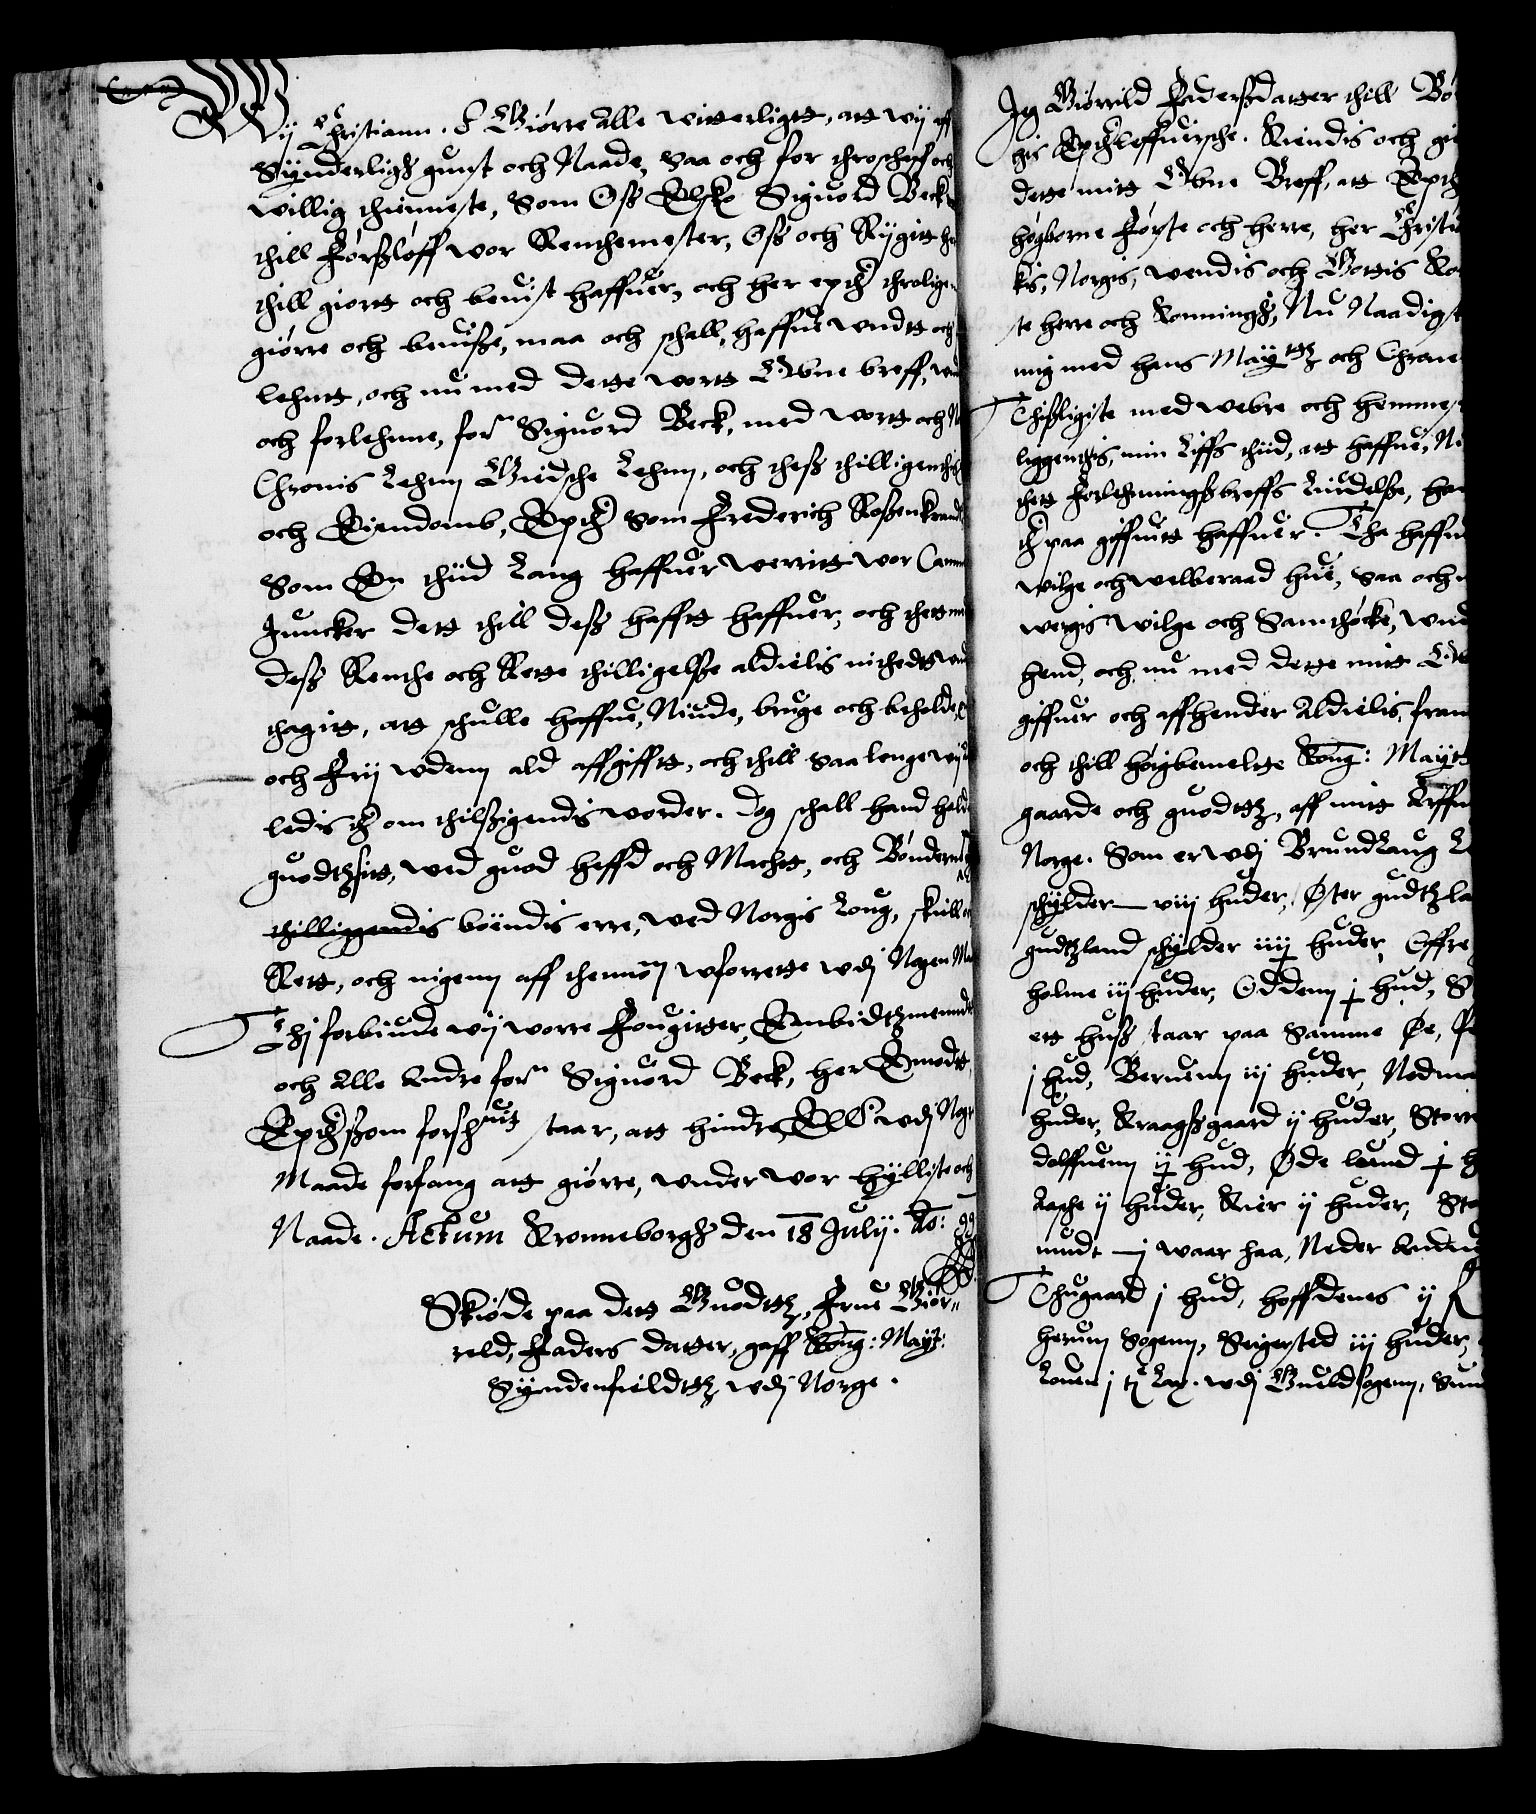 Wij Christiann. S Giørre Alle witterligtt, att wij aff
Synderlig gunst och Naade, saa och for throschaff och
willig thienneste, som Oss Elske Sigurd Beck
thill Førsløff wor Renthemester, Oss och Rigitt her
thill giortt och beuist haffuer, och her epther throligen
giørre och beuisse, maa och schall, haffue wndtt och
lehntt, och nu med dette wortt Obne breff, wnde
och forlehnne, for: Sigurd Beck, med wortt och N
Chronis Lehnn Giedsche Lehnn, och thess thilligendis
och Eiendomb, Epther som Frederich Rossenkrandtz
som En thiid Lang haffuer werritt wor Cam
Juncker dett thill dess hafft haffuer, och thett med
dess Renthe och Rette thilligelsse aldielis nithedtt wnd
thagitt, att schulle haffue, Niude, bruge och beholde,
och Frij wdenn ald affgifftt, och thill saa lenge wij
ledis ther om thilsigendis worder. Dog schall hand holde
guodtzsitt, wed guod heffd och Machtt, och Bønderne
thilliggendis boendis erre, wed Norgis Loug, skiell och
Rett, och ingenn aff thennom wforrette wdj Nogen Maade
Thj forbiude wij worre Fougitter, Embidtzmennd
och Alle Andre for: Sigurd Beck, her Emodtt,
Epthersom forschuit staar, att hindre, Eller wdj Nogre
Maade forfang att giørre, wnder wor hyllist och
Naade. Actum Kronneborg den 18 Julij. Ao: 99
Skiøde paa dett Guodttz, Frue Giør-
reld, Faders datter, gaff Kong: Mayt:
Syndenfieldttz wdj Norge.
Jeg Giørrild Faderssdatter thill Bø
gis Epterleffuersche. Kiendis och giø
dette mitt Obne Breff, att Epther
høgborne Første och herre, her Christian
kis, Norgis, wendis och Gottis Ko
ste herre och Konning, Nu Naadigst
mig med hans Maytts och Chrone
Thissligiste med webre och hemmes
liggendis, min Liffs thiid, att haffue, Ni
thett Forlehningssbreffs Liudelsse, han
ther paa giffuitt haffuer. Tha haffu
wilge och welberaad hue, saa och
wergis wilge och Samthøcke, wnd
hend, och nu med dette mitt Ob
giffuer och affhender Aldielis, fran
och thill høigbemeltte Kong: Maytt
gaarde och guodttz, aff mitt Liffn
Norge. Som er wdj Brundlaug L
schylder — viij huder, Øster gudtzla
gudtzland schylder iiij huder, Offre
holme iij huder, Oddenn j hud, S
ett huss staar paa samme Øe, fe
j hud, Beruenn iij huder, Nodma
huder, Kraagssgaard ij huder, Storre
dolffuenn ij hud, Øde lund j h
Aasche ij huder, Rier ij huder, Sto
mudt — j waar haa, Neder Andu
Thugaard j hud, hoffdenes ij
herum Sogenn, Seigersted iij huder,
Louen j Lax. wdj Guelds sogenn, Sun